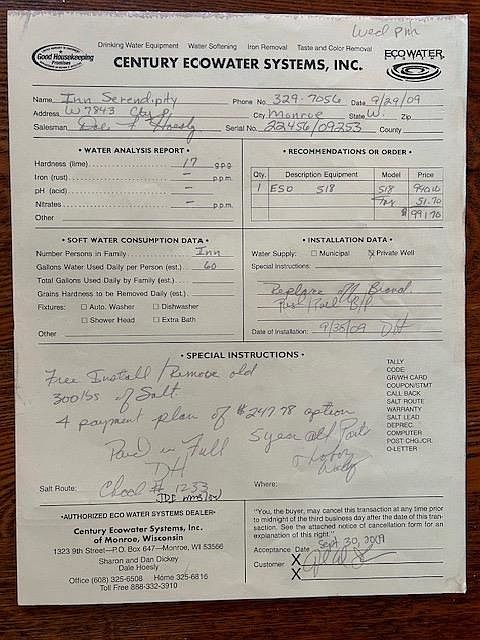 Wed pm
Drinking Water Equipment Water Softening Iron Removal Taste and Color Removal
Good Housekeeping
Promises
CENTURY ECOWATER SYSTEMS, INC.
ECOWATER
SYSTEMS
Name Inn Serendipity Phone No. 329-7056 Date 9/29/09
Address W7843 Cty P City Monroe State W. Zip
Salesman Dale F Hoesly Serial No. 22456/09253 County
• WATER ANALYSIS REPORT •
Hardness (lime) 17 gpg
Iron (rust) - p.p.m.
pH (acid) -
Nitrates - p.p.m.
Other
• RECOMMENDATIONS OR ORDER •
Qty. Description Equipment Model Price
1 ESD 518 518 940.00
Tax 51.70
$ 991.70
• SOFT WATER CONSUMPTION DATA •
Number Persons in Family Inn
Gallons Water Used Daily per Person (est.) 60
Total Gallons Used Daily by Family (est.)
Grains Hardness to be Removed Daily (est.)
Fixtures: □ Auto. Washer □ Dishwasher
□ Shower Head □ Extra Bath
Other
• INSTALLATION DATA •
Water Supply: □ Municipal ☒ Private Well
Special Instructions:
Replace off Brand
Date of Installation: DH
• SPECIAL INSTRUCTIONS •
Free Install / Remove old
300 lbs of Salt.
4 payment plan of $247.78 option
Paid in Full 5 year all Parts
DH
Check # 1233
Salt Route: Where:
TALLY
CODE
GR/WH CARD
COUPON/STMT
CALL BACK
SALT ROUTE
WARRANTY
SALT LEAD
DEPREC.
COMPUTER
POST CHGJCR.
O-LETTER
•AUTHORIZED ECO WATER SYSTEMS DEALER•
Century Ecowater Systems, Inc.
of Monroe, Wisconsin
1323 9th Street—P.O. Box 647—Monroe, WI 53566
Sharon and Dan Dickey
Dale Hoesly
Office (608) 325-6508 Home 325-6816
Toll Free 888-332-3910
"You, the buyer, may cancel this transaction at any time prior
to midnight of the third business day after the date of this tran-
saction. See the attached notice of cancellation form for an
explanation of this right."
Acceptance Date Sept 30, 2009
Customer X
X